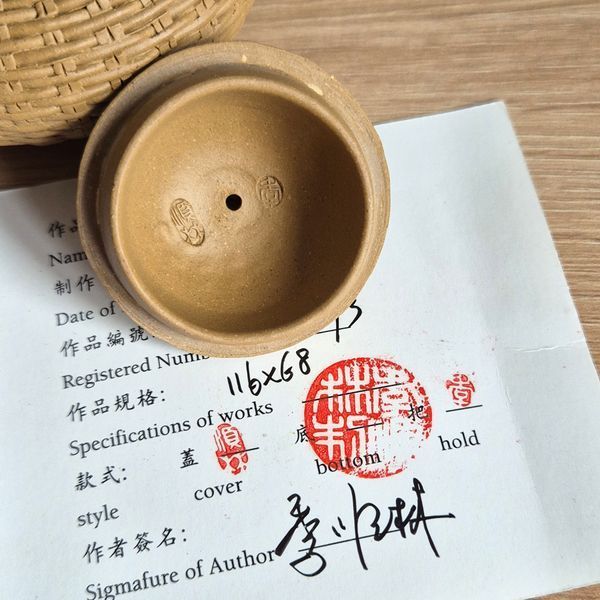 作品
Nam
制作
Date of
作品編號
Registered Numb
作品規格：
116×68
Specifications of works
款式：
蓋
底
把
style
cover
bottom
hold
作者簽名：
Sigmafure of Author